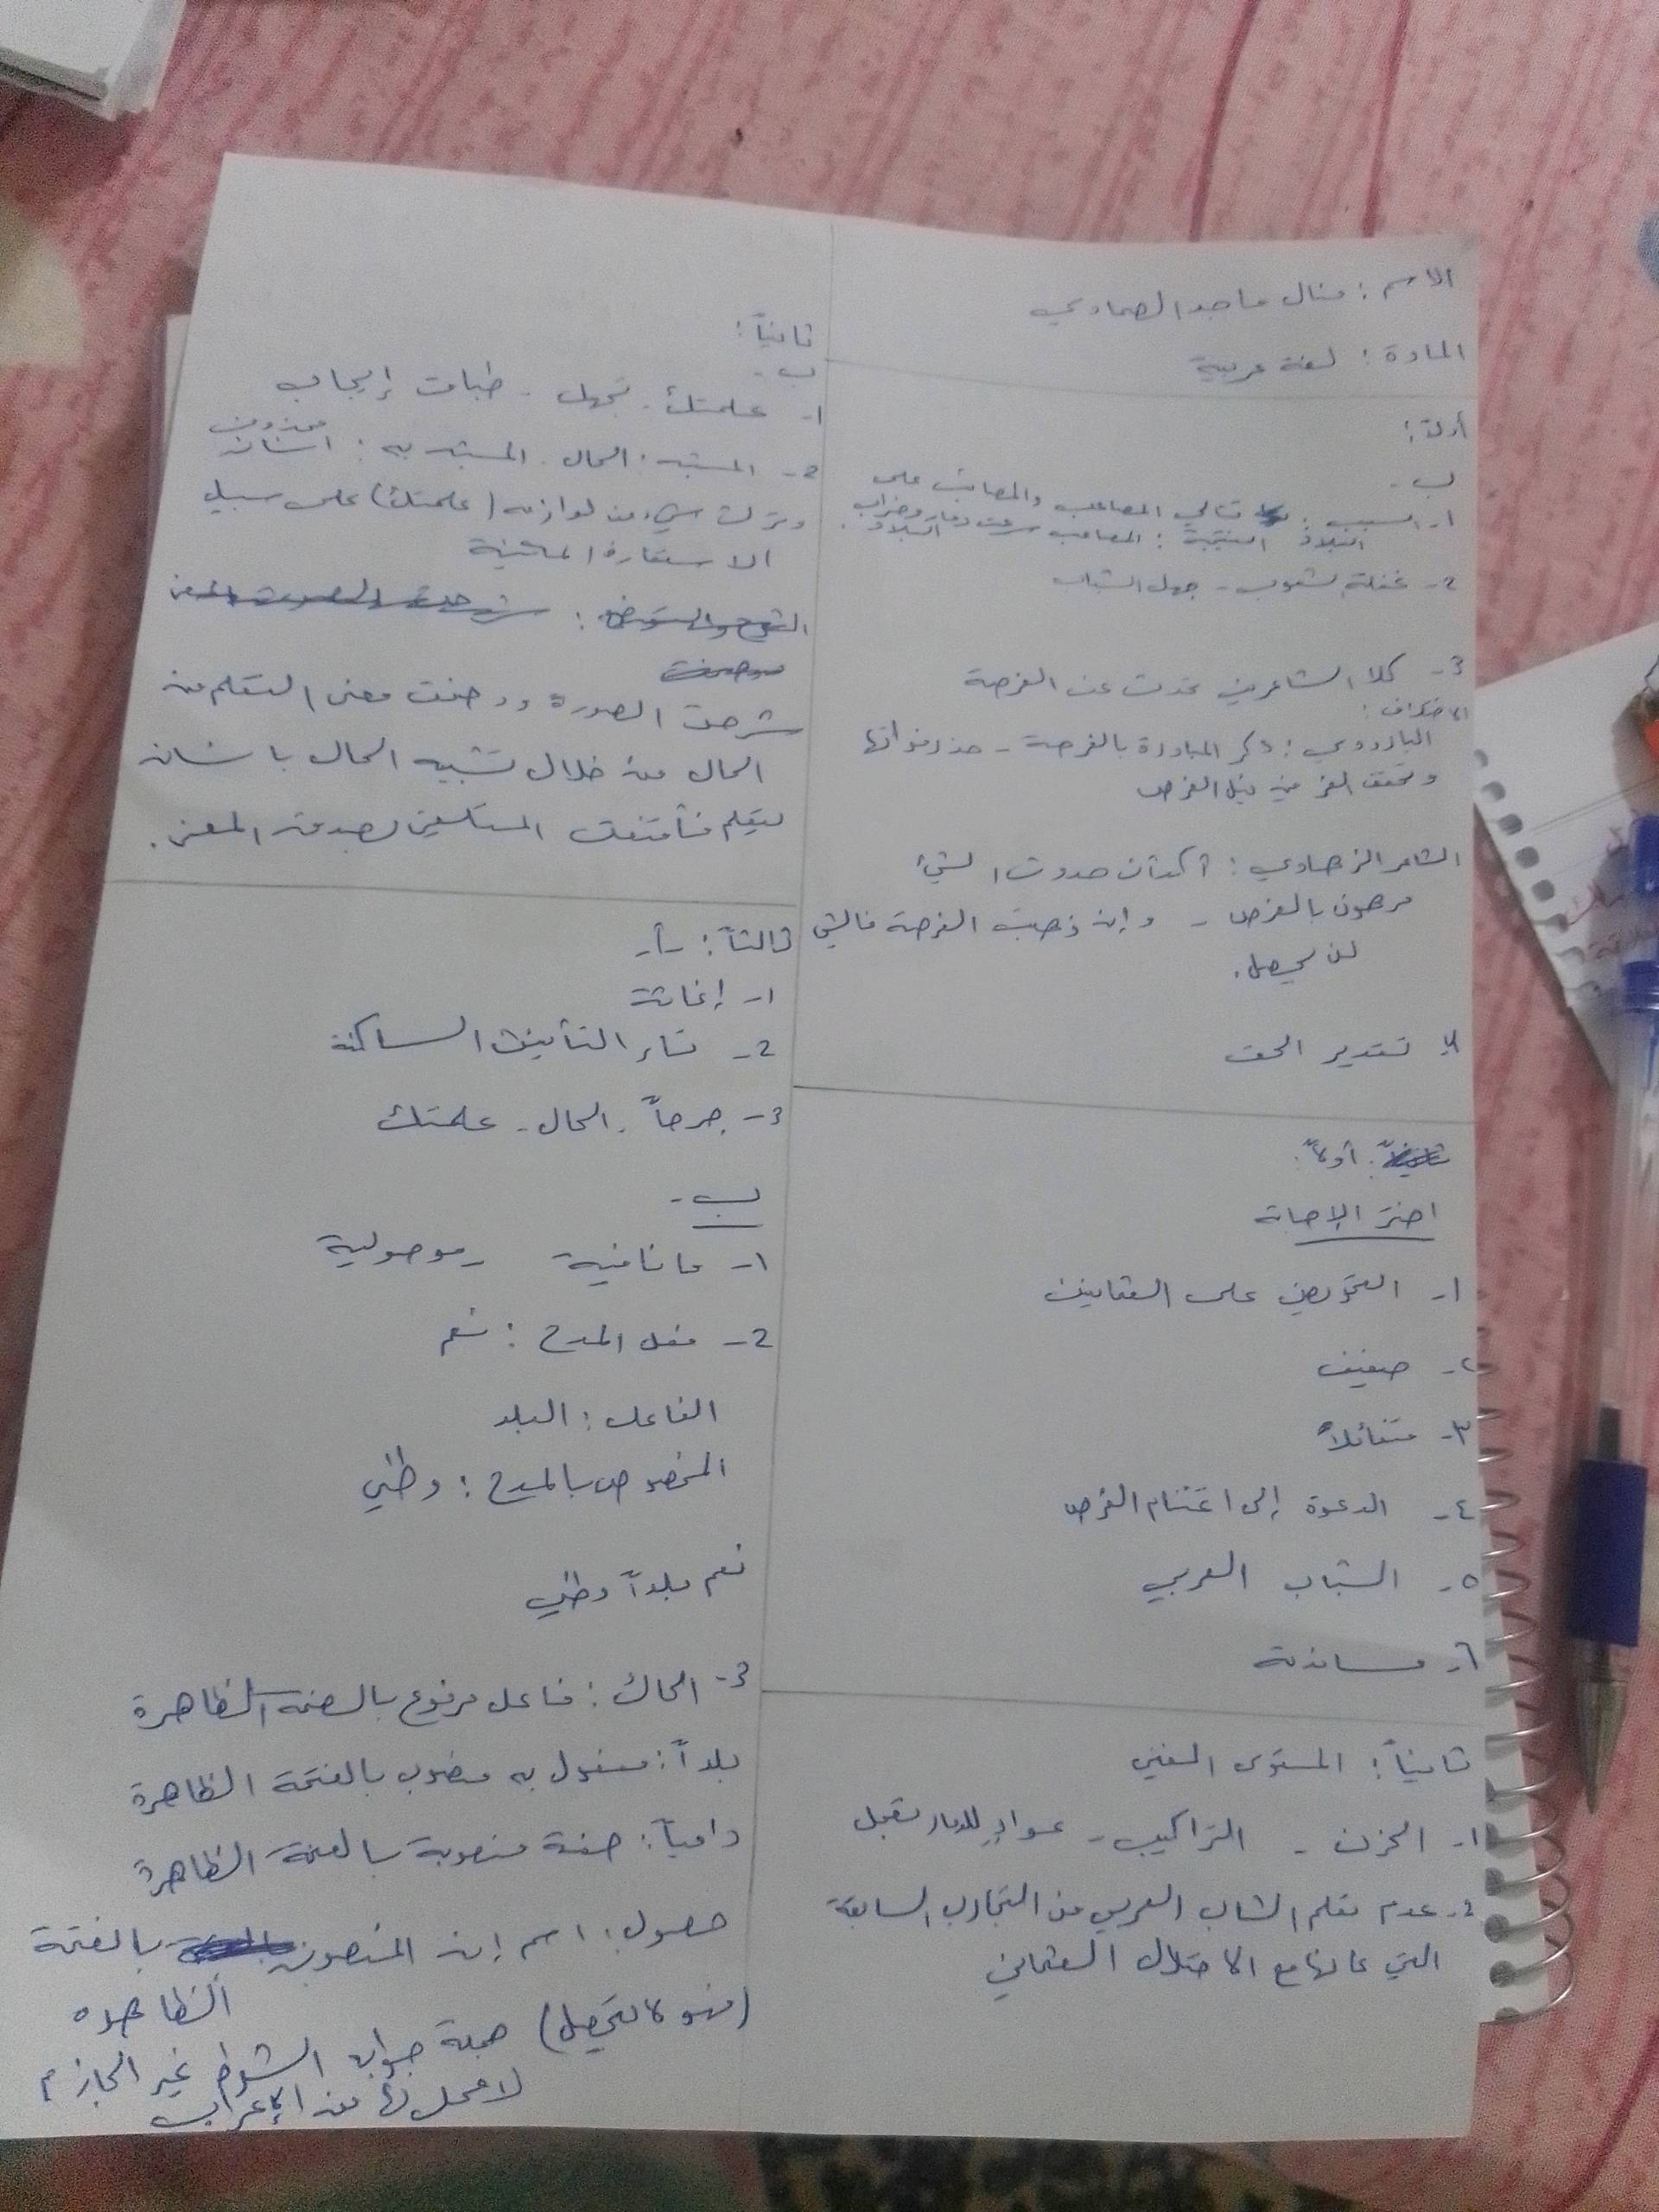 الاسم : منال ماجد الصمادي
المادة : لغة عربية
أولاً :
ب -
1- السبب : توالي المصاعب والمصائب على
البلاد النتيجة : المصائب سرعت دمار وخراب البلاد .
2- غفلة الشعوب - جهل الشباب
3- كلا الشاعرين تحدث عن الفرصة
الاختلاف :
البارودي : ذكر المبادرة بالفرصة - حذر فواتها
وتحقق العز في نيل الفرص
الشاعر الزهاوي : أكد أن حدوث الشيء
مرهون بالفرص - وإن ذهبت الفرصة فالشيء
لن يحصل .
4- تقدير الحق
أولاً :
اختر الإجابة
1- التحريض على العثمانيين
2- صفيف
3- متفائلاً
4- الدعوة إلى اغتنام الفرص
5- الشباب العربي
6- مساندته
ثانياً : المستوى الفني
1- الحزن - التراكيب - عوادٍ للدمار تعجل
2- عدم تعلم الشاب العربي من التجارب السابقة
التي عانها مع الاحتلال العثماني
ثانياً :
ب -
1- علمتك - تجهل - طباق إيجاب
2- المشبه : الحال - المشبه به : انسان محذوف
وترك شيء من لوازمه (علمتك) على سبيل
الاستعارة المكنية
شرحت الصورة ووضحت معنى التعلم من
الحال من خلال تشبيه الحال بانسان
يتعلم فأقنعت المتلقي بصدق المعنى .
ثالثاً : -أ-
1- إغاثة
2- تاء التأنيث الساكنة
3- جرحاً - الحال - علمتك
ب -
1- ما نافية - موصولية
2- فعل المدح : نعم
الفاعل : البلد
المخصوص بالمدح : وطني
نعم بلداً وطني
3- الحال : فاعل مرفوع بالضمة الظاهرة
بلداً : مفعول به منصوب بالفتحة الظاهرة
دامياً : صفة منصوبة بالفتحة الظاهرة
حصول : اسم إن المنصوب بالفتحة
الظاهره
(فهو لا يحصل) جملة جواب الشرط غير الجازم
لا محل لها من الإعراب